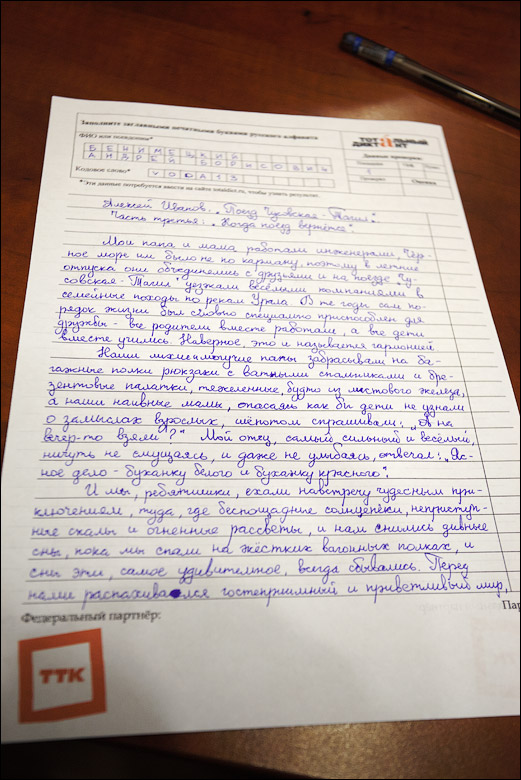 Заполните заглавными печатными буквами русского алфавита
ФИО или псевдоним*
БЕНИМЕЦКИЙ
АНДРЕЙ БОРИСОВИЧ
Кодовое слово*
VODA13
*Эти данные потребуется ввести на сайте totaldict.ru, чтобы узнать результат.
ТОТАЛЬНЫЙ
ДИКТАНТ
Данные проверки:
1
Оценка
Алексей Иванов. „Поезд Чусовская - Тагил"
Часть третья: „Когда поезд вернётся"
Мои папа и мама работали инженерами, Чёр-
ное море им было не по карману, поэтому в летние
отпуска они объединялись с друзьями и на поезде „Чу-
совская - Тагил" уезжали весёлыми компаниями в
семейные походы по рекам Урала. В те годы сам по-
рядок жизни был словно специально приспособлен для
дружбы - все родители вместе работали, а все дети
вместе учились. Наверное, это и называется гармонией.
Наши лихие и могучие папы забрасывали на ба-
гажные полки рюкзаки с ватными спальниками и бре-
зентовые палатки, тяжеленные, будто из листового железа,
а наши наивные мамы, опасаясь как бы дети не узнали
о замыслах взрослых, шёпотом спрашивали: „А на
вечер-то взяли?" Мой отец, самый сильный и весёлый,
ничуть не смущаясь, и даже не улыбаясь, отвечал: „Яс-
ное дело - буханку белого и буханку красного".
И мы, ребятишки, ехали навстречу чудесным при-
ключением, туда, где беспощадные солнцепёки, неприступ-
ные скалы и огненные рассветы, и нам снились дивные
сны, пока мы спали на жёстких вагонных полках, и
сны эти, самое удивительное, всегда сбывались. Перед
нами распахивался гостеприимный и приветливый мир,
Федеральный партнёр:
Пар
ТТК